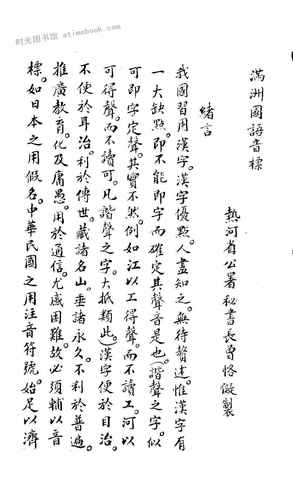 时光图书馆 atimebook.com
滿洲國語音標
熱河省公署秘書長曾恪儗製
緒言
我國習用漢字。漢字優點。人盡知之。無待贅述。惟漢字有
一大缺點。即不能即字而確定其聲音是也。(諧聲之字。似
可即字定聲。其實不然。例如江以工得聲。而不讀工。河以
可得聲。而不讀可。凡諧聲之字。大抵類此)漢字便於目治。
不便於耳治。利於傳世。藏諸名山。垂諸永久。不利於普遍。
推廣教育。化及庸愚。用於通信。尤感困難。故必須輔以音
標。如日本之用假名。中華民國之用注音符號。始足以濟